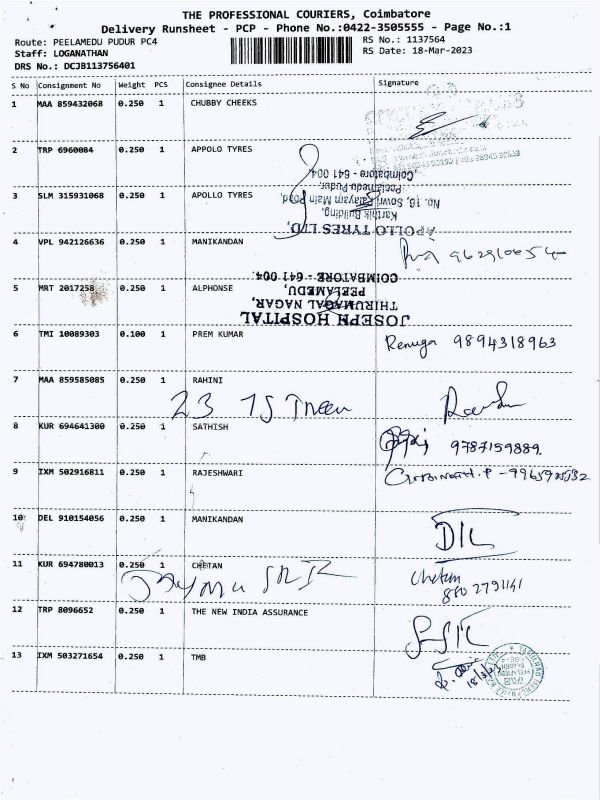 THE PROFESSIONAL COURIERS, Coimbatore
Delivery Runsheet - PCP - Phone No.:0422-3505555 - Page No.:1
Route: PEELAMEDU PUDUR PC4 RS No.: 1137564
Staff: LOGANATHAN RS Date: 18-Mar-2023
DRS No.: DCJB113756401
S No Consignment No Weight PCS Consignee Details Signature
1 MAA 859432068 0.250 1 CHUBBY CHEEKS
2 TRP 6960084 0.250 1 APPOLO TYRES
3 SLM 315931068 0.250 1 APOLLO TYRES
APOLLO TYRES LTD,
Karthik Building,
No. 16, Sowripalayam Main Road,
Peelamedu Pudur,
Coimbatore - 641 004
4 VPL 942126636 0.250 1 MANIKANDAN
5 MRT 2017258 0.250 1 ALPHONSE
JOSEPH HOSPITAL
THIRUMAGAL NAGAR,
PEELAMEDU,
COIMBATORE - 641 004.
6 TMI 10089303 0.100 1 PREM KUMAR Renuga 9894318963
7 MAA 859585085 0.250 1 RAHINI
23
8 KUR 694641300 0.250 1 SATHISH 9787159889.
9 IXM 502916811 0.250 1 RAJESHWARI
10 DEL 910154056 0.250 1 MANIKANDAN
11 KUR 694780013 0.250 1 CHETAN Chetan
12 TRP 8096652 0.250 1 THE NEW INDIA ASSURANCE
13 IXM 503271654 0.250 1 TMB
18/3/23